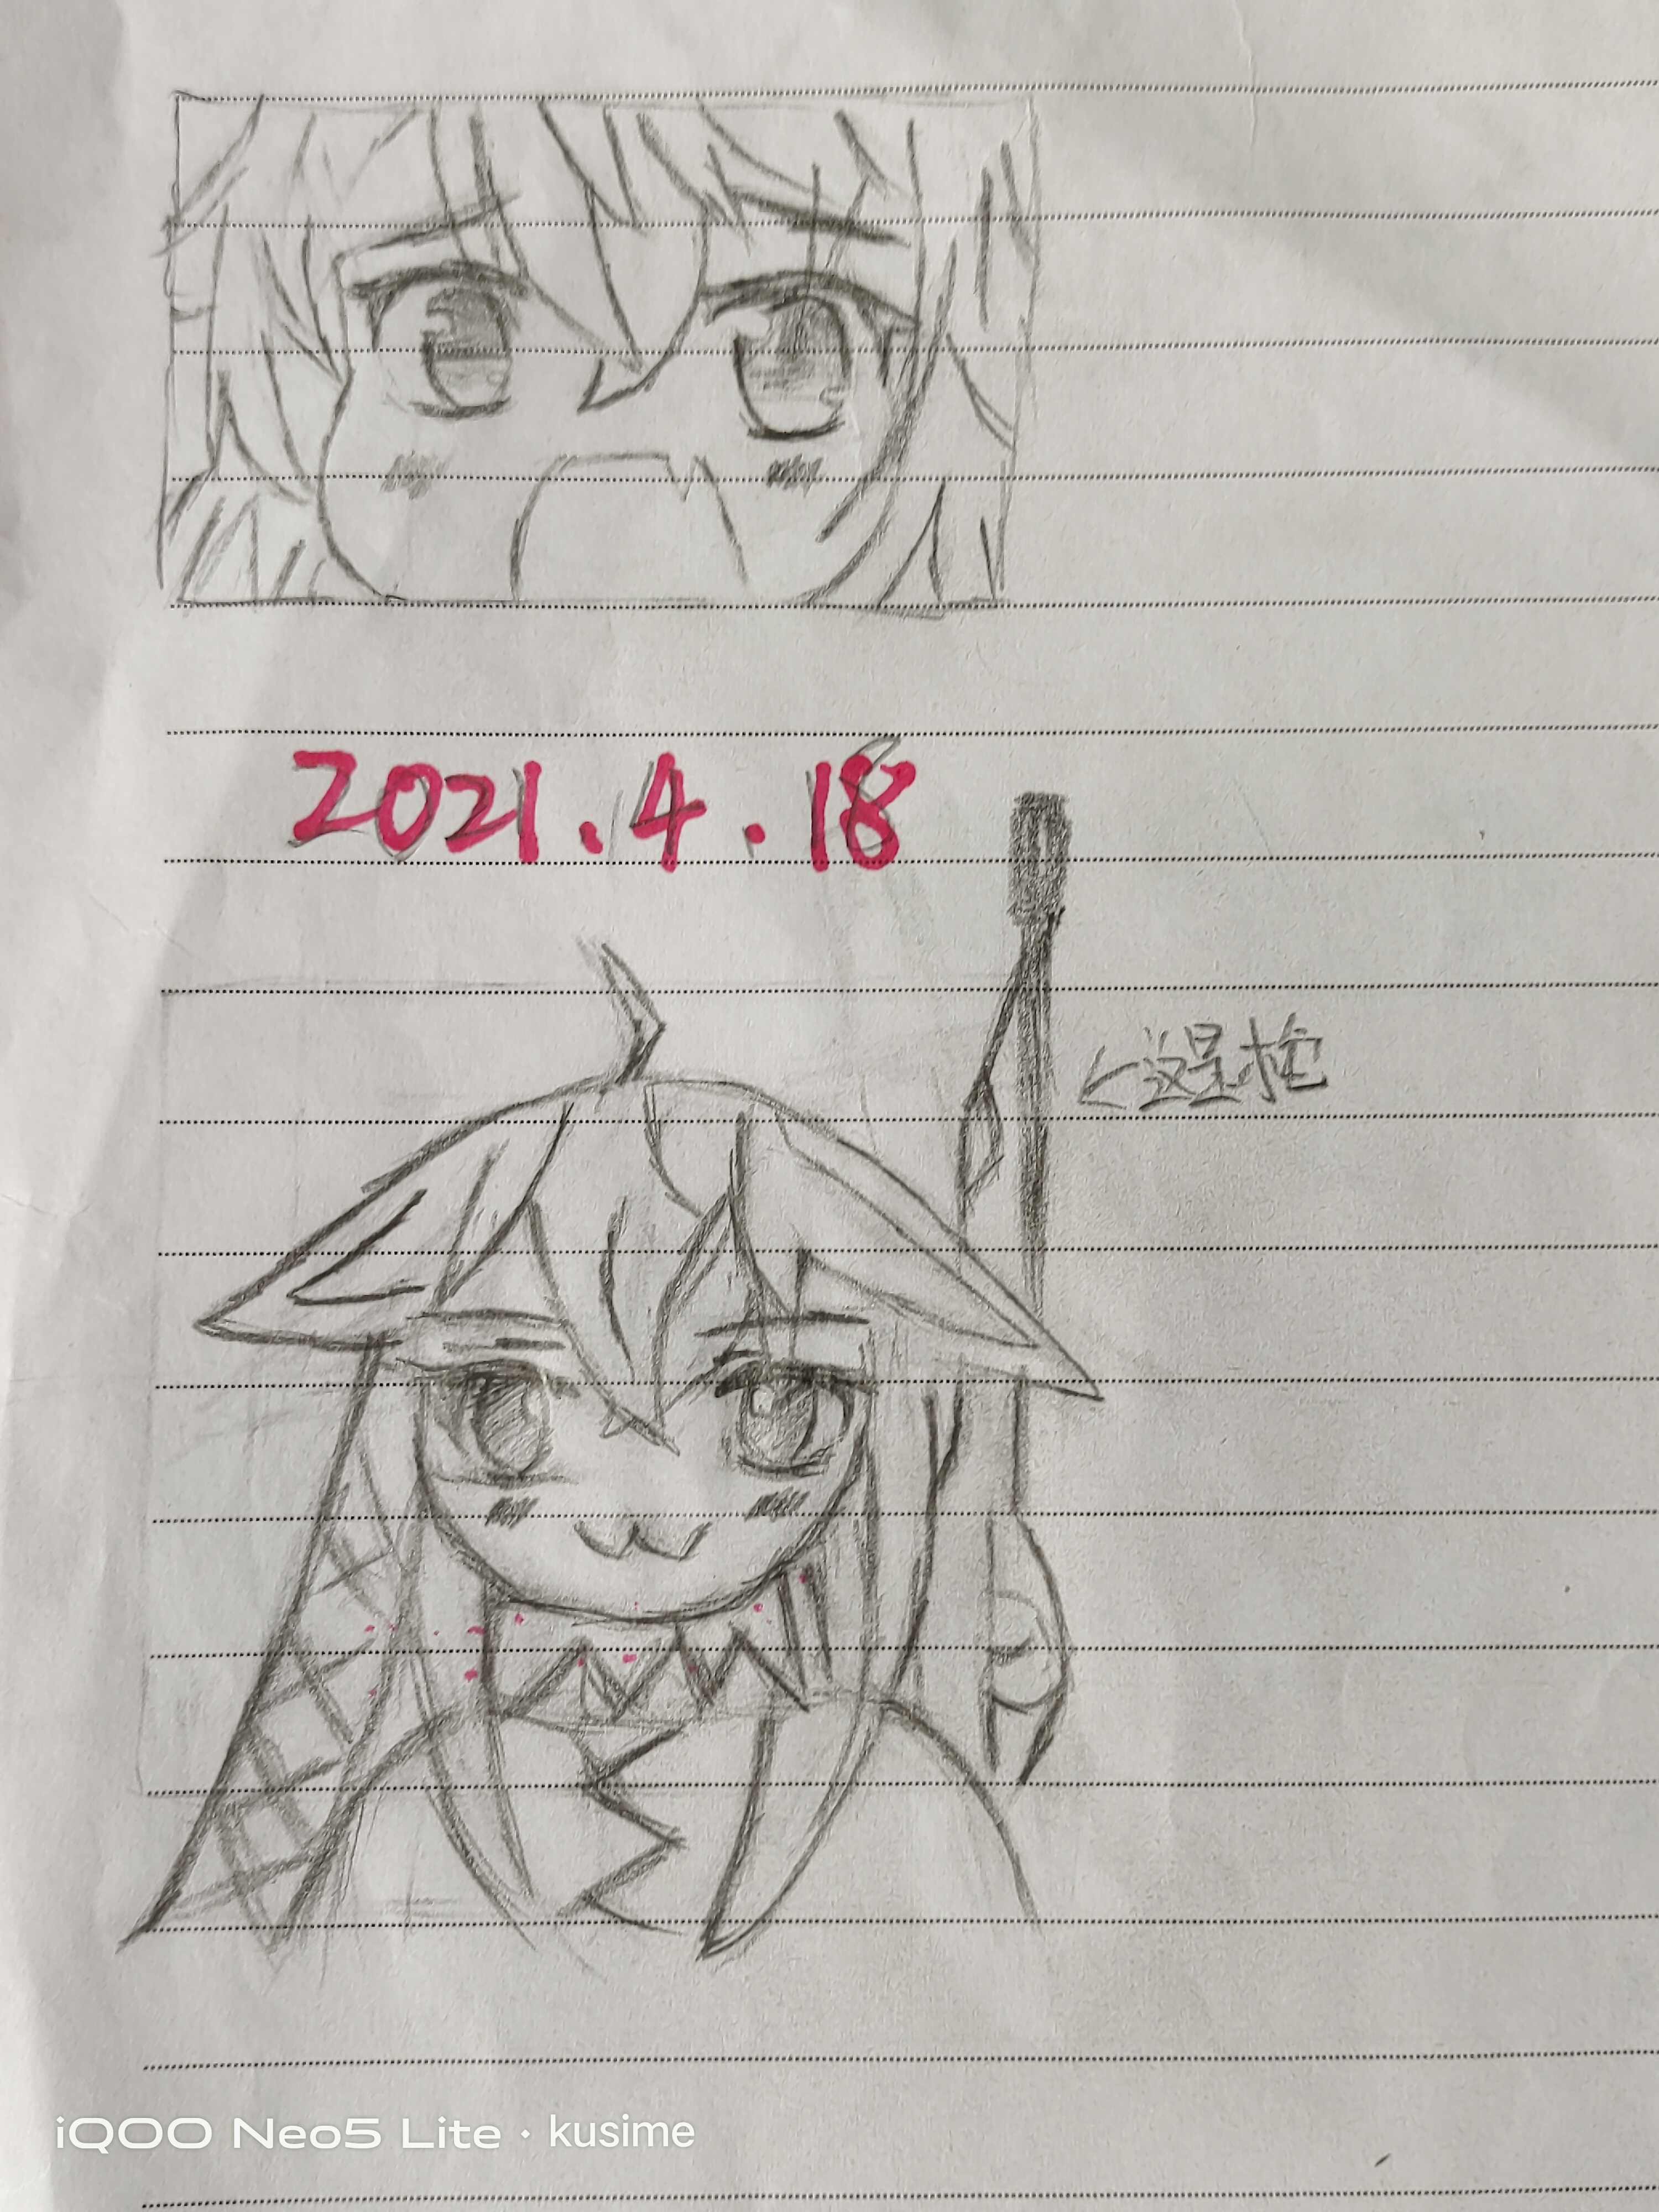 2021.4.18
<这是枪
iQOO Neo5 Lite · kusime